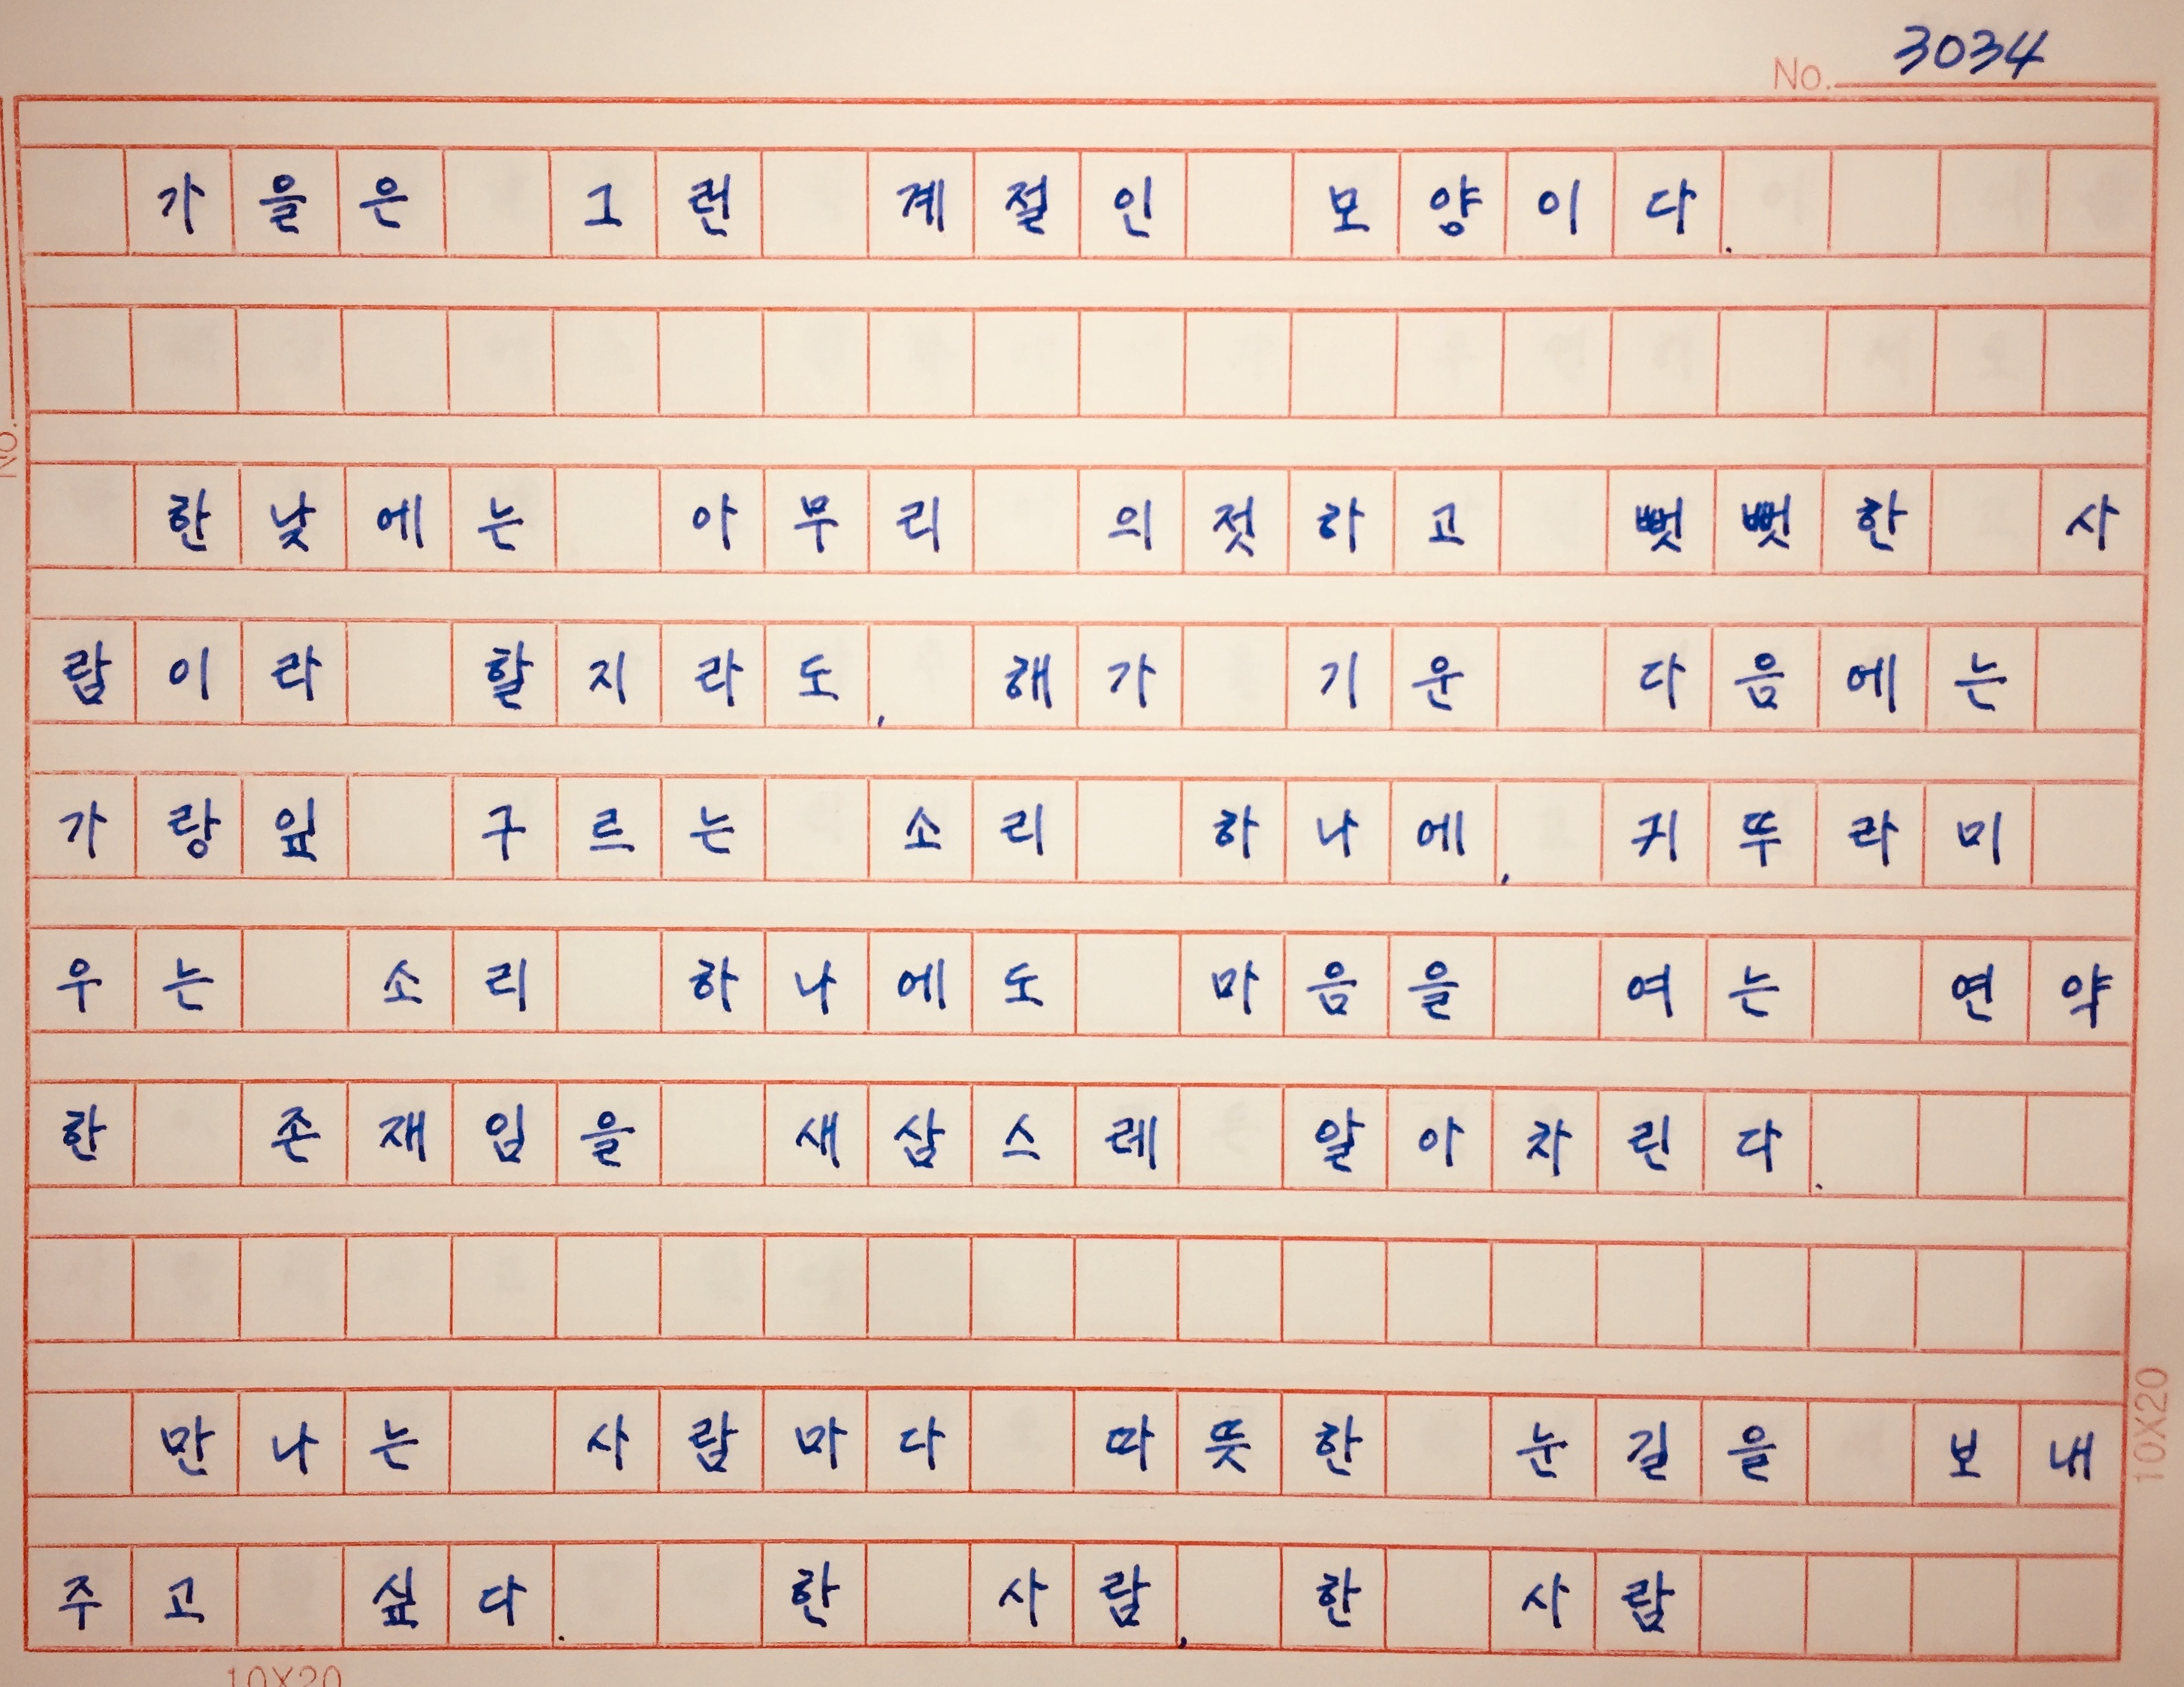 No. 3034
가을은 그런 계절인 모양이다.
한낮에는 아무리 의젓하고 뻣뻣한 사
람이라 할지라도, 해가 기운 다음에는
가랑잎 구르는 소리 하나에, 귀뚜라미
우는 소리 하나에도 마음을 여는 연약
한 존재임을 새삼스레 알아차린다.
만나는 사람마다 따뜻한 눈길을 보내
주고 싶다. 한 사람, 한 사람
No.
10X20
10X20